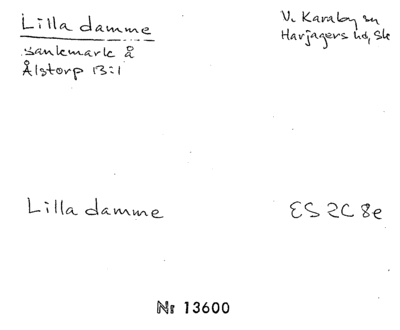 Lilla damme
sankmark å
Ålstorp 13:1
V. Karaby sn
Harjagers hd, Sk
Lilla damme
ES 2C 8e
Nr 13600